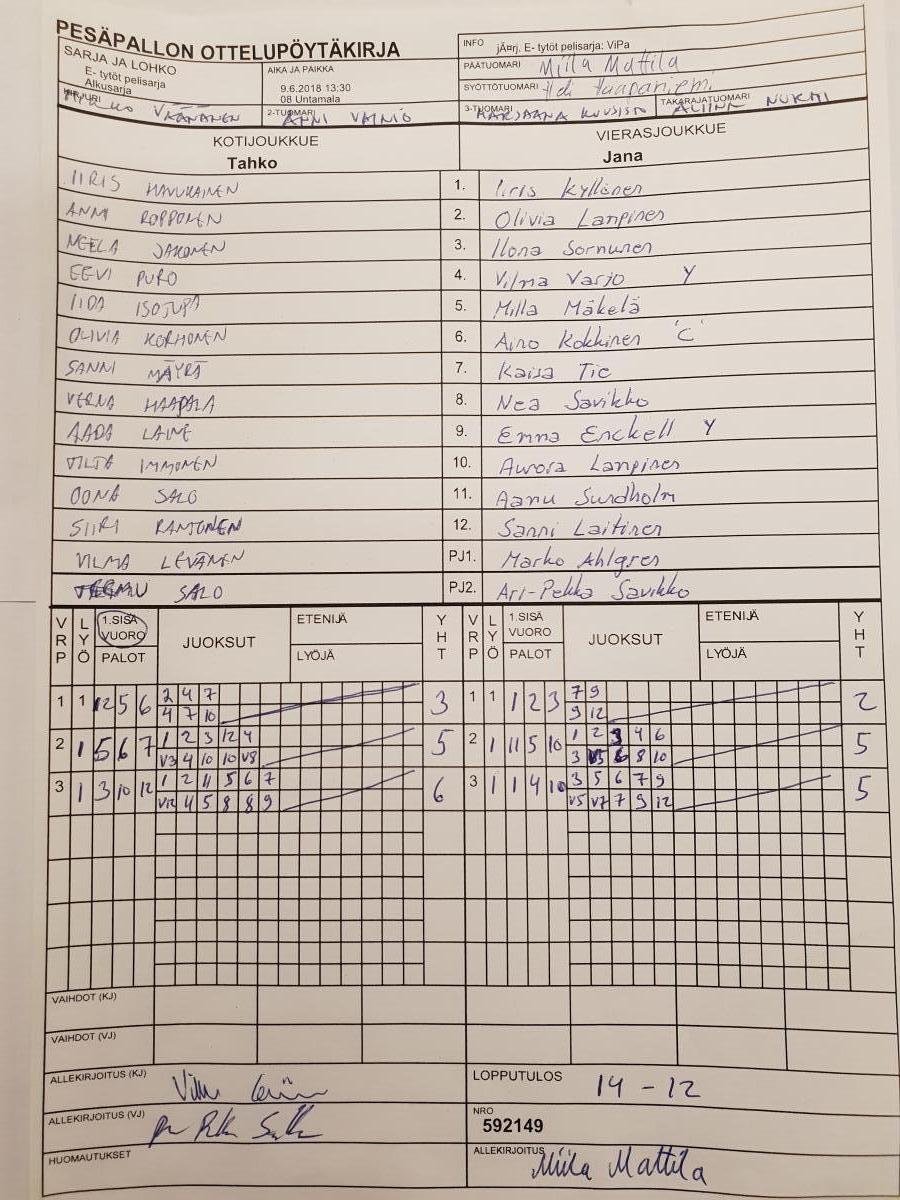 PESÄPALLON OTTELUPÖYTÄKIRJA
SARJA JA LOHKO
E- tytöt pelisarja
Alkusarja
AIKA JA PAIKKA
9.6.2018 13:30
08 Untamala
INFO jÄ¤rj. E- tytöt pelisarja: ViPa
PÄÄTUOMARI Miila Mattila
SYÖTTÖTUOMARI Haapaniemi
KIRJURI VÄÄNÄNEN
2-TUOMARI ANNI VAINIO
3-TUOMARI KUUSISTO
TAKARAJATUOMARI NURMI
KOTIJOUKKUE
Tahko
VIERASJOUKKUE
Jana
IIRIS HAVUKAINEN 1. Iiris Kyllönen
ANNI ROPPONEN 2. Olivia Lampinen
NEELA JAKONEN 3. Ilona Sornunen
EEVI PURO 4. Vilma Varjo Y
IIDA ISOTUPA 5. Milla Mäkelä
OLIVIA KORHONEN 6. Aino Kokkinen 'C'
SANNI MÄYRÄ 7. Kaisa Tie
VERNA HAAPALA 8. Nea Savikko
AADA LAINE 9. Emma Enckell Y
VILJA IMMONEN 10. Aurora Lampinen
OONA SALO 11. Aanu Sundholm
SIIRI RANTONEN 12. Sanni Laitinen
VILMA LEVÄNEN PJ1. Marko Ahlgren
TEEMU SALO PJ2. Ari-Pekka Savikko
VRP LYÖ 1.SISÄ VUORO PALOT JUOKSUT ETENIJÄ LYÖJÄ YHT VRP LYÖ 1.SISÄ VUORO PALOT JUOKSUT ETENIJÄ LYÖJÄ YHT
1 1 12 5 6 2 4 7 3 1 1 1 2 3 7 9 2
4 7 10 9 12
2 1 5 6 7 1 2 3 12 4 5 2 1 11 5 10 1 2 3 4 6 5
V3 4 10 10 V8 3 V5 6 8 10
3 1 3 10 12 1 2 11 5 6 7 6 3 1 1 4 10 3 5 6 7 9 5
V12 4 5 8 8 9 V5 V7 7 9 12
VAIHDOT (KJ)
VAIHDOT (VJ)
ALLEKIRJOITUS (KJ)
LOPPUTULOS 14 - 12
ALLEKIRJOITUS (VJ)
NRO
592149
HUOMAUTUKSET
ALLEKIRJOITUS Miila Mattila